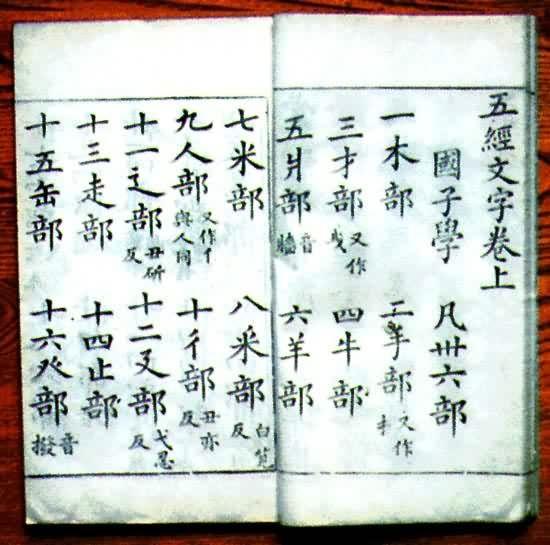 五經文字卷上
國子學 凡卅六部
一木部 二手部 又作扌
三才部 又作 四牛部
五爿部 音牆 六羊部
七米部 八釆部 白莧反
九人部 又作亻與人同 十彳部 丑亦反
十一辶部 丑反 十二廴部 弋忍反
十三走部 十四止部
十五缶部 十六癶部 音撥